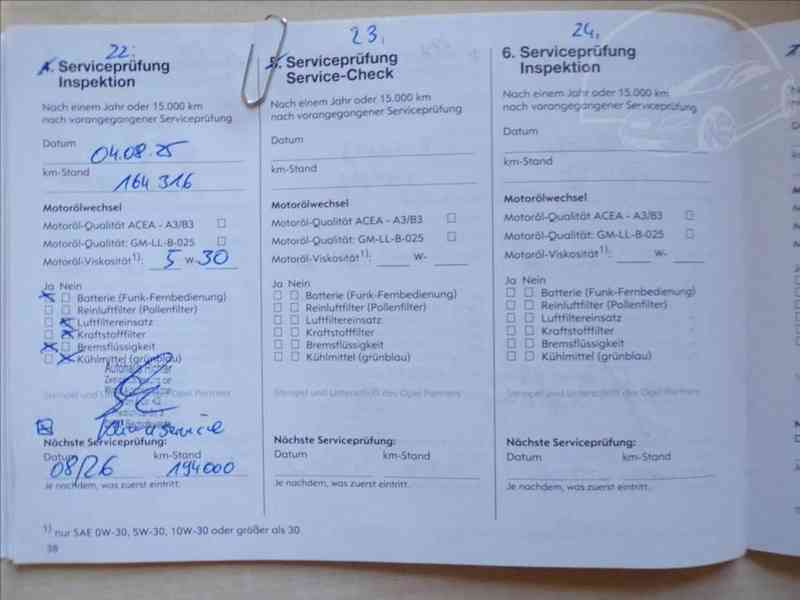 22.
4. Serviceprüfung
Inspektion
Nach einem Jahr oder 15.000 km
nach vorangegangener Serviceprüfung
Datum
04.08.25
km-Stand
164 316
Motorölwechsel
Motoröl-Qualität ACEA - A3/B3
Motoröl-Qualität: GM-LL-B-025
Motoröl-Viskosität1): 5 W-30
Ja Nein
Batterie (Funk-Fernbedienung)
Reinluftfilter (Pollenfilter)
Luftfiltereinsatz
Kraftstofffilter
Bremsflüssigkeit
Kühlmittel (grünblau)
Autohaus Richter
Stempel und Unterschrift des Opel Partners
Nächste Serviceprüfung:
Datum km-Stand
08/26 194000
Je nachdem, was zuerst eintritt.
23.
5. Serviceprüfung
Service-Check
Nach einem Jahr oder 15.000 km
nach vorangegangener Serviceprüfung
Datum
km-Stand
Motorölwechsel
Motoröl-Qualität ACEA - A3/B3
Motoröl-Qualität: GM-LL-B-025
Motoröl-Viskosität1): W-
Ja Nein
Batterie (Funk-Fernbedienung)
Reinluftfilter (Pollenfilter)
Luftfiltereinsatz
Kraftstofffilter
Bremsflüssigkeit
Kühlmittel (grünblau)
Stempel und Unterschrift des Opel Partners
Nächste Serviceprüfung:
Datum km-Stand
Je nachdem, was zuerst eintritt.
24.
6. Serviceprüfung
Inspektion
Nach einem Jahr oder 15.000 km
nach vorangegangener Serviceprüfung
Datum
km-Stand
Motorölwechsel
Motoröl-Qualität ACEA - A3/B3
Motoröl-Qualität: GM-LL-B-025
Motoröl-Viskosität1): W-
Ja Nein
Batterie (Funk-Fernbedienung)
Reinluftfilter (Pollenfilter)
Luftfiltereinsatz
Kraftstofffilter
Bremsflüssigkeit
Kühlmittel (grünblau)
Stempel und Unterschrift des Opel Partners
Nächste Serviceprüfung:
Datum km-Stand
Je nachdem, was zuerst eintritt.
1) nur SAE 0W-30, 5W-30, 10W-30 oder größer als 30
38